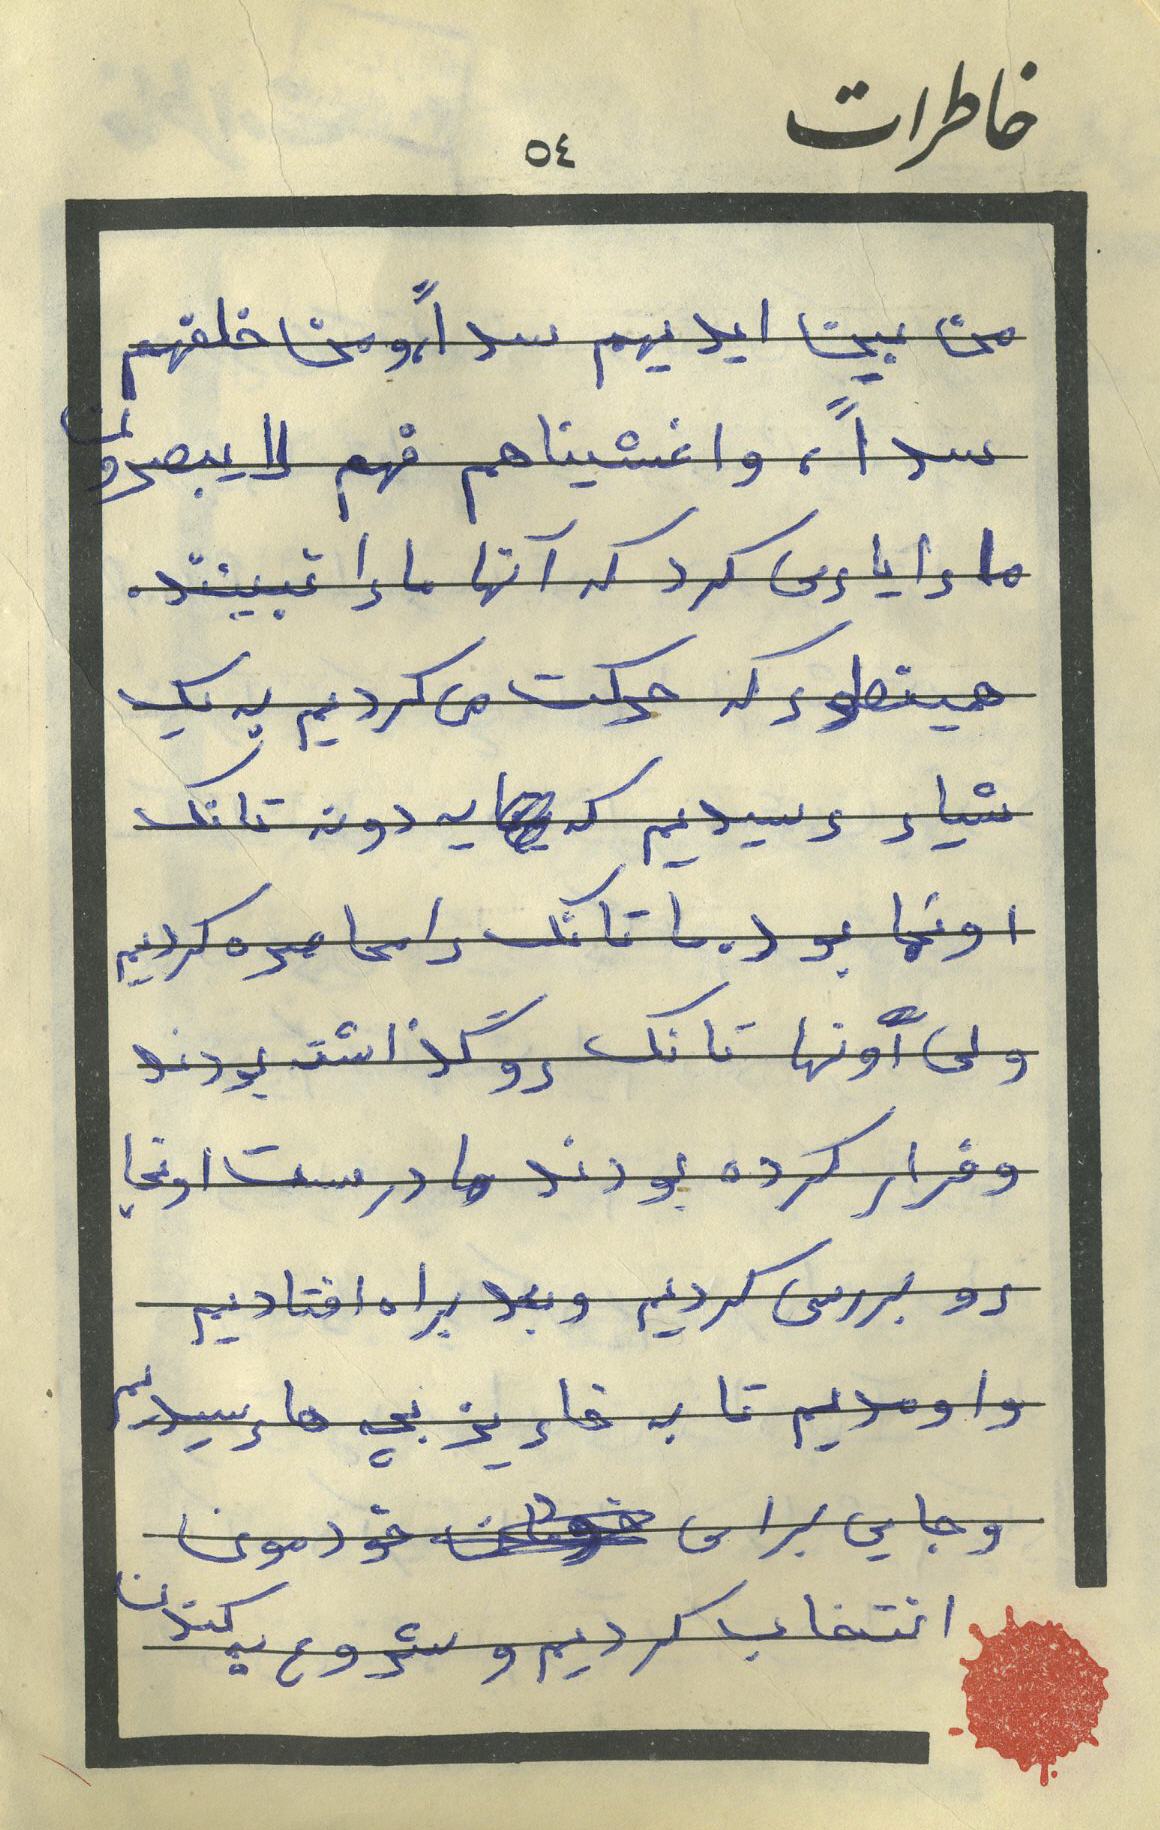 خاطرات
٥٤
من بین ایدیهم سداً، ومن خلفهم
سداً، واغشیناهم فهم لا یبصرون
ما را یاری کرد که آنها ما را نبینند.
همینطور که حرکت می کردیم به یک
شیار رسیدیم که یه دونه تانک
اونجا بود. ما تانک را محاصره کردیم
ولی اونها تانک رو گذاشته بودند
و فرار کرده بودند ما درست اونجا
رو بررسی کردیم و بعد براه افتادیم
و اومدیم تا به خاریز بچه ها رسیدیم
و جایی برای خودمون
انتخاب کردیم و شروع به کندن